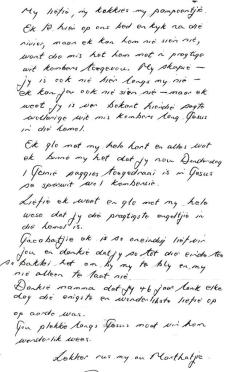 My liefie, my bokkies my pampoentjie.
Ek lê hier op ons bed en kyk na die
rivier, maar ek kan hom nie sien nie,
want die mis het hom met 'n pragtige
wit kombers toegevou. My skapie –
jy is ook nie hier langs my nie –
ek kan jou ook nie sien nie – maar ek
weet jy is daar bekant hierdie sagte
wollerige wit mis kombers lang Jesus
in die hemel.
Ek glo met my hele hart en alles wat
ek binne my het dat jy nou Donderdag
1 Junie saggies toegedraai is in Jesus
se spierwit wol kombersie.
Liefie ek weet en glo met my hele
wese dat jy die pragtigste engeltjie in
die hemel is.
ek is so oneindig lief vir
jou en dankie dat jy so tot die einde toe
so baklei het om by my te bly en my
nie alleen te laat nie.
Dankie mamma dat jy 46 jaar lank elke
dag die enigste en wonderlikste liefie op
op aarde was.
Jou plekke langs Jesus moet vir hom
wonderlik wees.
Lekker rus my ou Marthatjie.